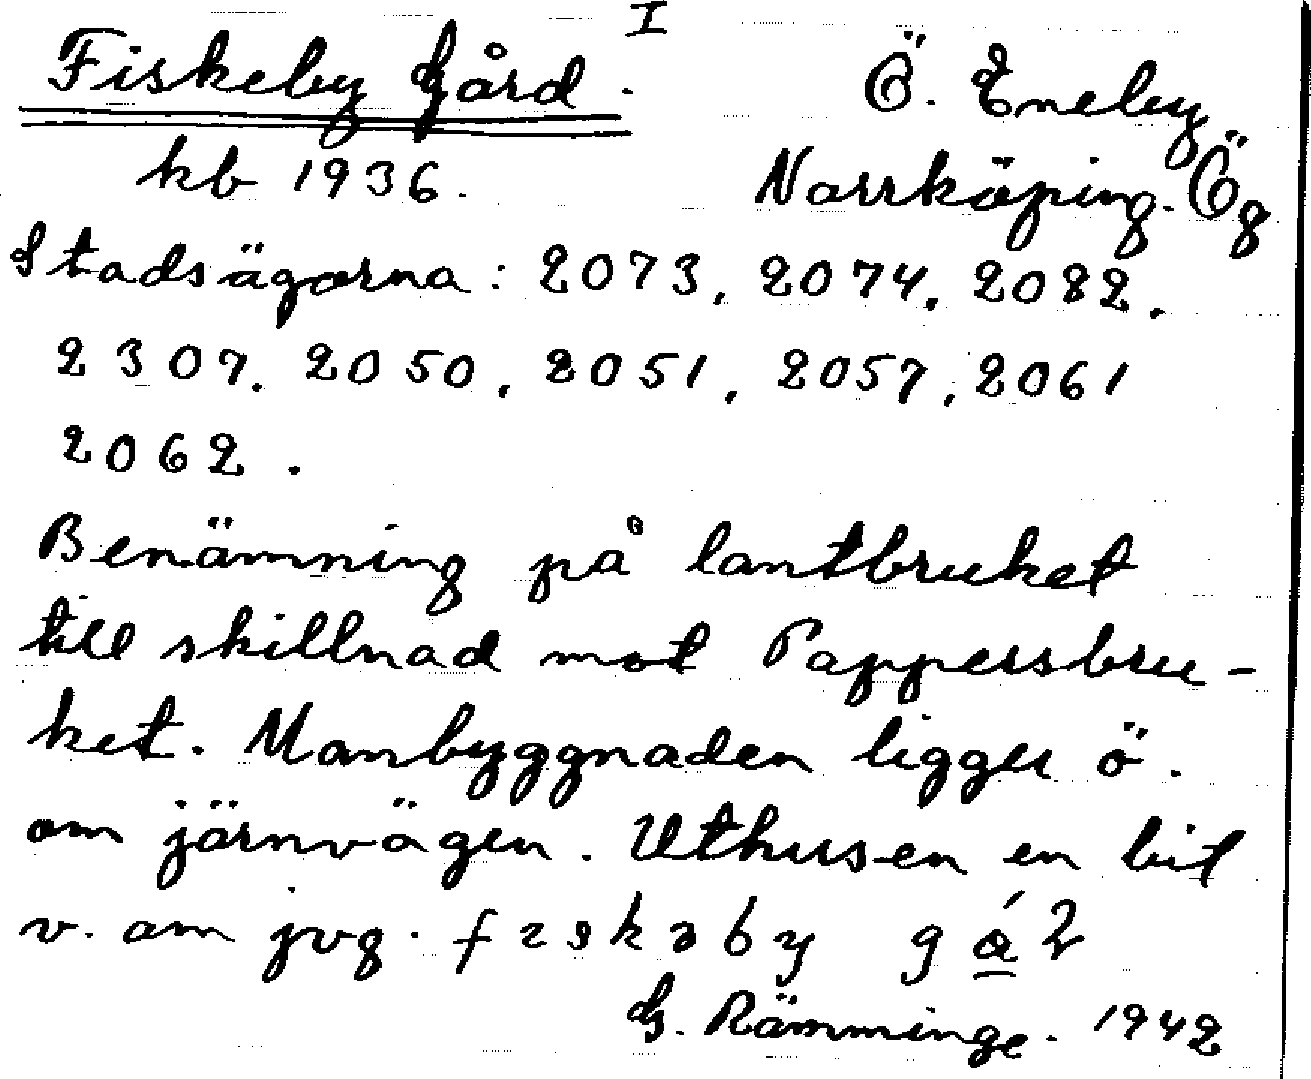 I
Fiskeby Gård.
Ö. Eneby
kb 1936.
Norrköping. Ög
Stadsägorna: 2073, 2074, 2082.
2307. 2050, 2051, 2057, 2061
2062.
Benämning på lantbruket
till skillnad mot Pappersbru-
ket. Manbyggnaden ligger ö.
om järnvägen. Uthusen en bit
v. om jvg.
G. Rämminge. 1942